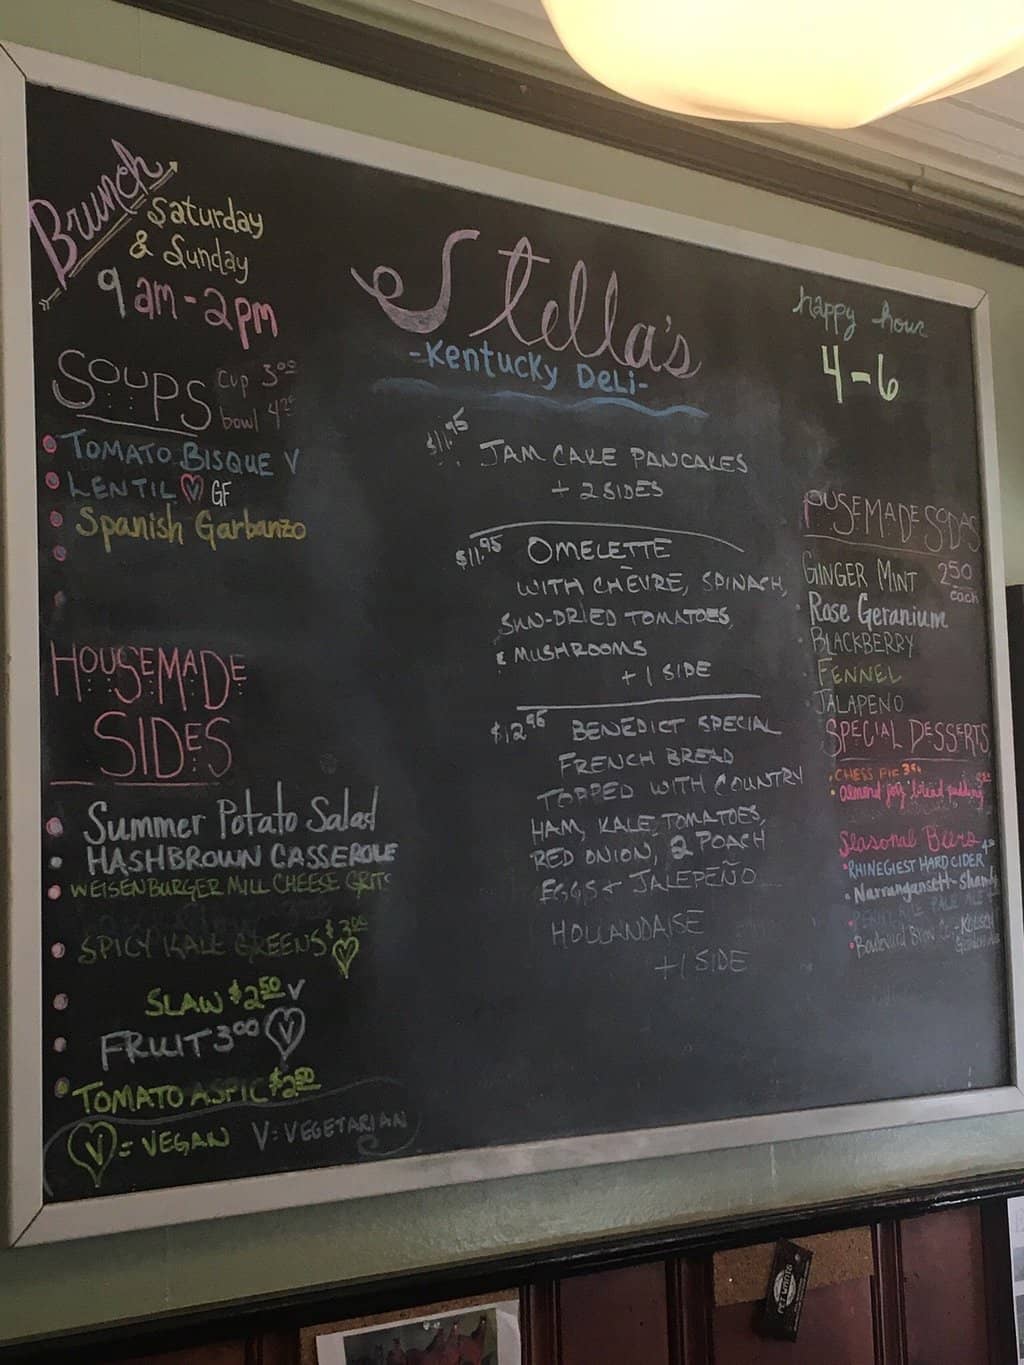 Brunch
Saturday
& Sunday
9am-2pm
SOUPS
cup 3.00
bowl 4.25
TOMATO BISQUE V
LENTIL V GF
Spanish Garbanzo
HOUSEMADE
SIDES
Summer Potato Salad
HASHBROWN CASSEROLE
WEISENBURGER MILL CHEESE GRITS
SPICY KALE GREENS $3.00 V
SLAW $2.50 V
FRUIT 3.00 V
TOMATO ASPIC $2.50
V = VEGAN V=VEGETARIAN
Stella's
-Kentucky DeLi-
$11.95 JAM CAKE PANCAKES
+ 2 SIDES
$11.95 OMELETTE
WITH CHÈVRE, SPINACH,
SUN-DRIED TOMATOES,
& MUSHROOMS
+1 SIDE
$12.95 BENEDICT SPECIAL
FRENCH BREAD
TOPPED WITH COUNTRY
HAM, KALE, TOMATOES,
RED ONION, 2 POACH
EGGS + JALEPEÑO
HOLLANDAISE
+1 SIDE
happy hour
4-6
HOUSEMADE SODAS
2.50
each
GINGER MINT
Rose Geranium
BLACKBERRY
FENNEL
JALAPENO
SPECIAL DESSERTS
CHESS PIE
almond joy bread pudding
Seasonal Beers
RHINEGIEST HARD CIDER
Narrangansett-Shandy
PALE ALE